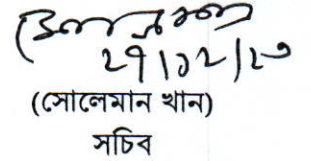 ২৭/১২/২৩
(সোলেমান খান)
সচিব